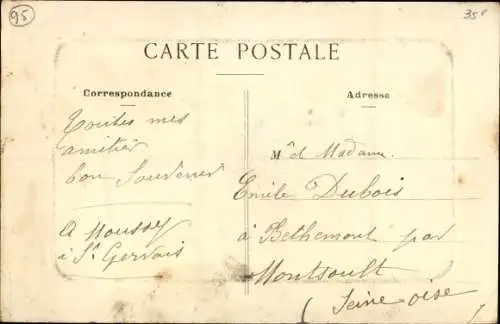 95
35f
CARTE POSTALE
Correspondance
Adresse
Toutes mes
amitiés
bon Souvenir
A Moussy
à St Gervais
Mr et Madame
Emile Dubois
à Bethemont par
Montsoult
(Seine oise